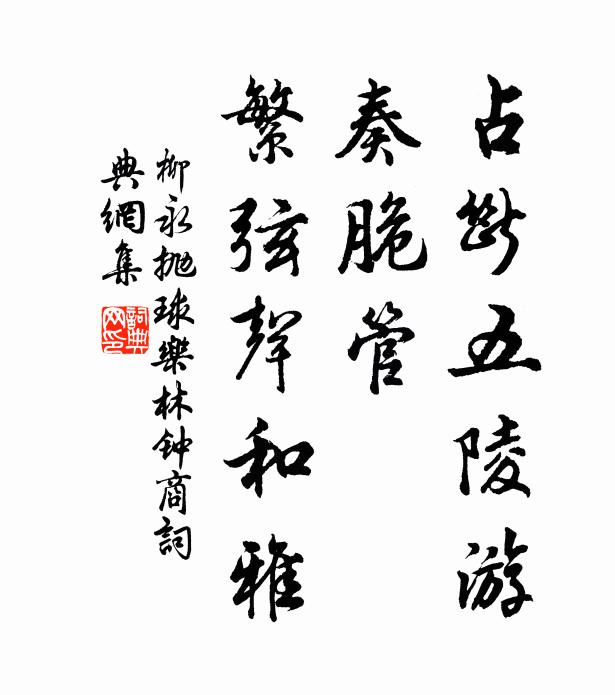 占断五陵游
奏脆管
繁弦聲和雅
柳永抛球樂林钟商詞
典網集
詞典网印